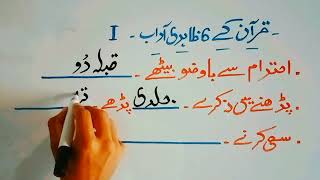 ۔ قرآن کے 6 ظاہری آداب ۔ I
۔ احترام سے باوضو بیٹھے ۔ قبلہ رُو
۔ پڑھنے میں نہ کرے ۔ جلدی پڑھے
۔ سعی کرنے ۔